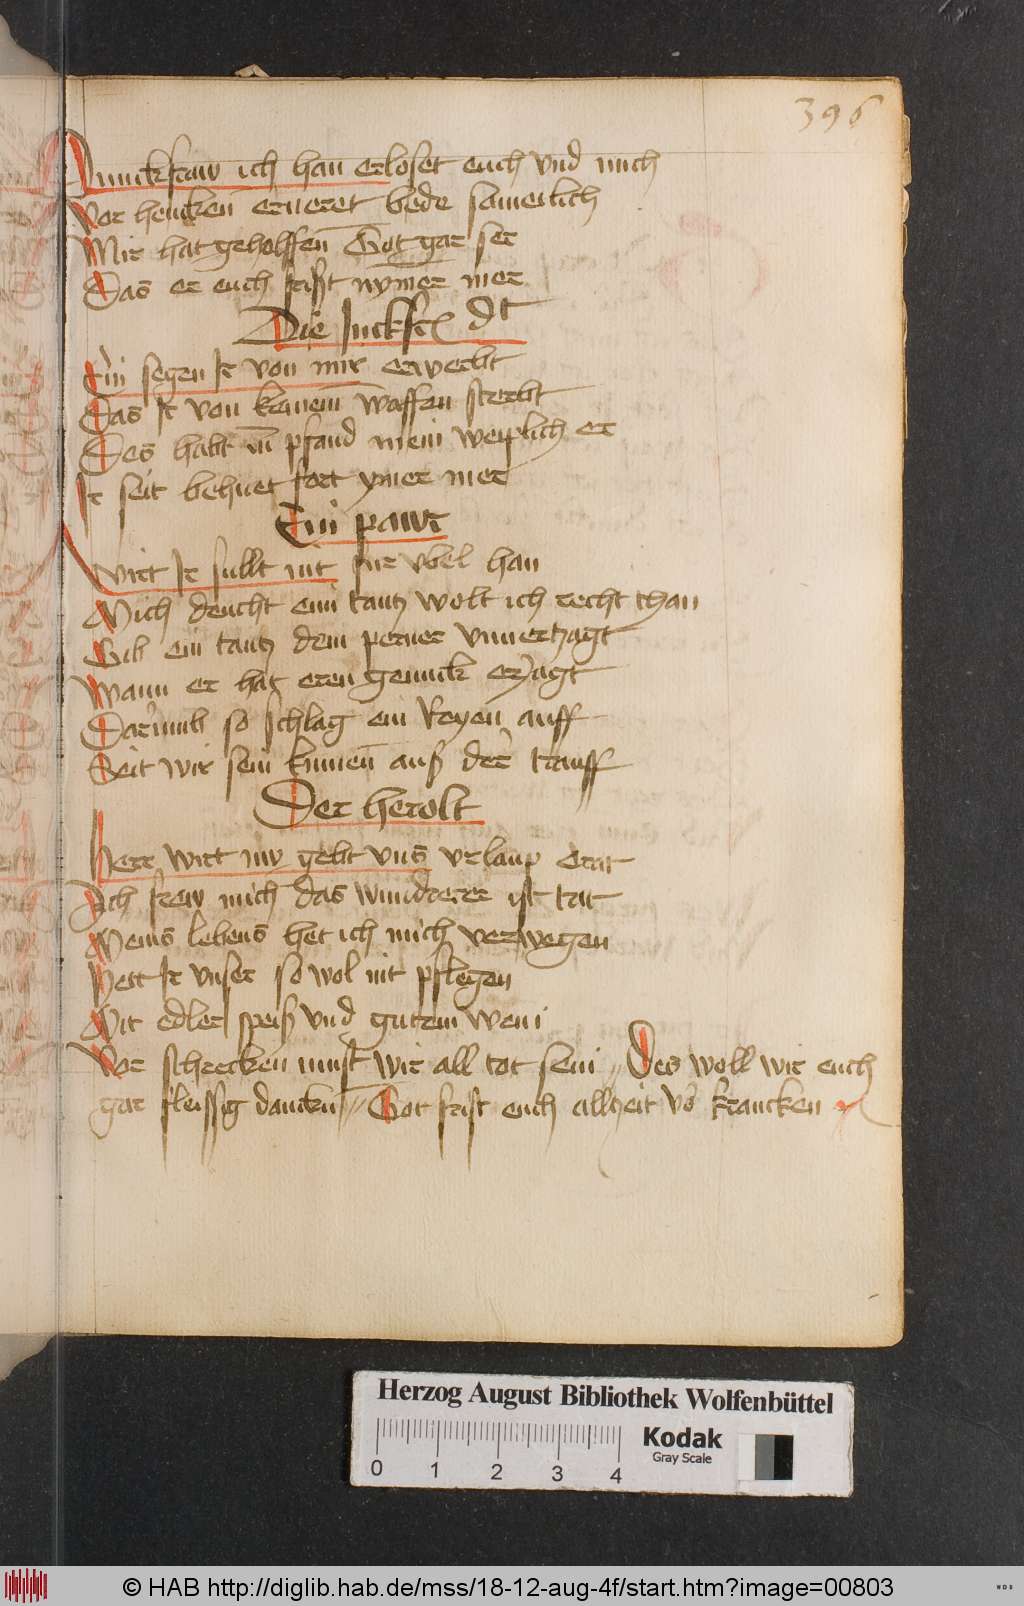 396
Junckfraw ich han erloset euch vnd mich
Vor hencken erneret bede samentlich
Mir hat geholffen Got gar ser
Das er euch frist nymer mer
Die Junckfr dt
Ein segen Ir von mir erwerbt
Das Ir von keinem Waffen sterbt
Des habt in pfand mein weiplich er
Ir seit behuet fort ymer mer
Ein pawr
Wirt Ir sullt nit fur vbel han
Mich deucht ein tantz wolt ich recht than
Gib ein tantz dem perner vnuertzagt
Wann er hat eren genunck erjagt
Darumb so schlag ein Reyen auff
Seit wir sein kumen auß der trauff
Der herolt
Herr Wirt nu gebt vns vrlaup drat
Ich frew mich das wundrer ist tat
Meins lebens het ich mich verwegen
Hett Ir vnser so wol nit pflegen
Mit edler speiß vnd gutem Wein
Vor schrecken must wir all tot sein Des woll wir euch
gar fleissig dancken Got frist euch allzeit vor krancken
Herzog August Bibliothek Wolfenbüttel
Kodak
Gray Scale
0 1 2 3 4
© HAB http://diglib.hab.de/mss/18-12-aug-4f/start.htm?image=00803